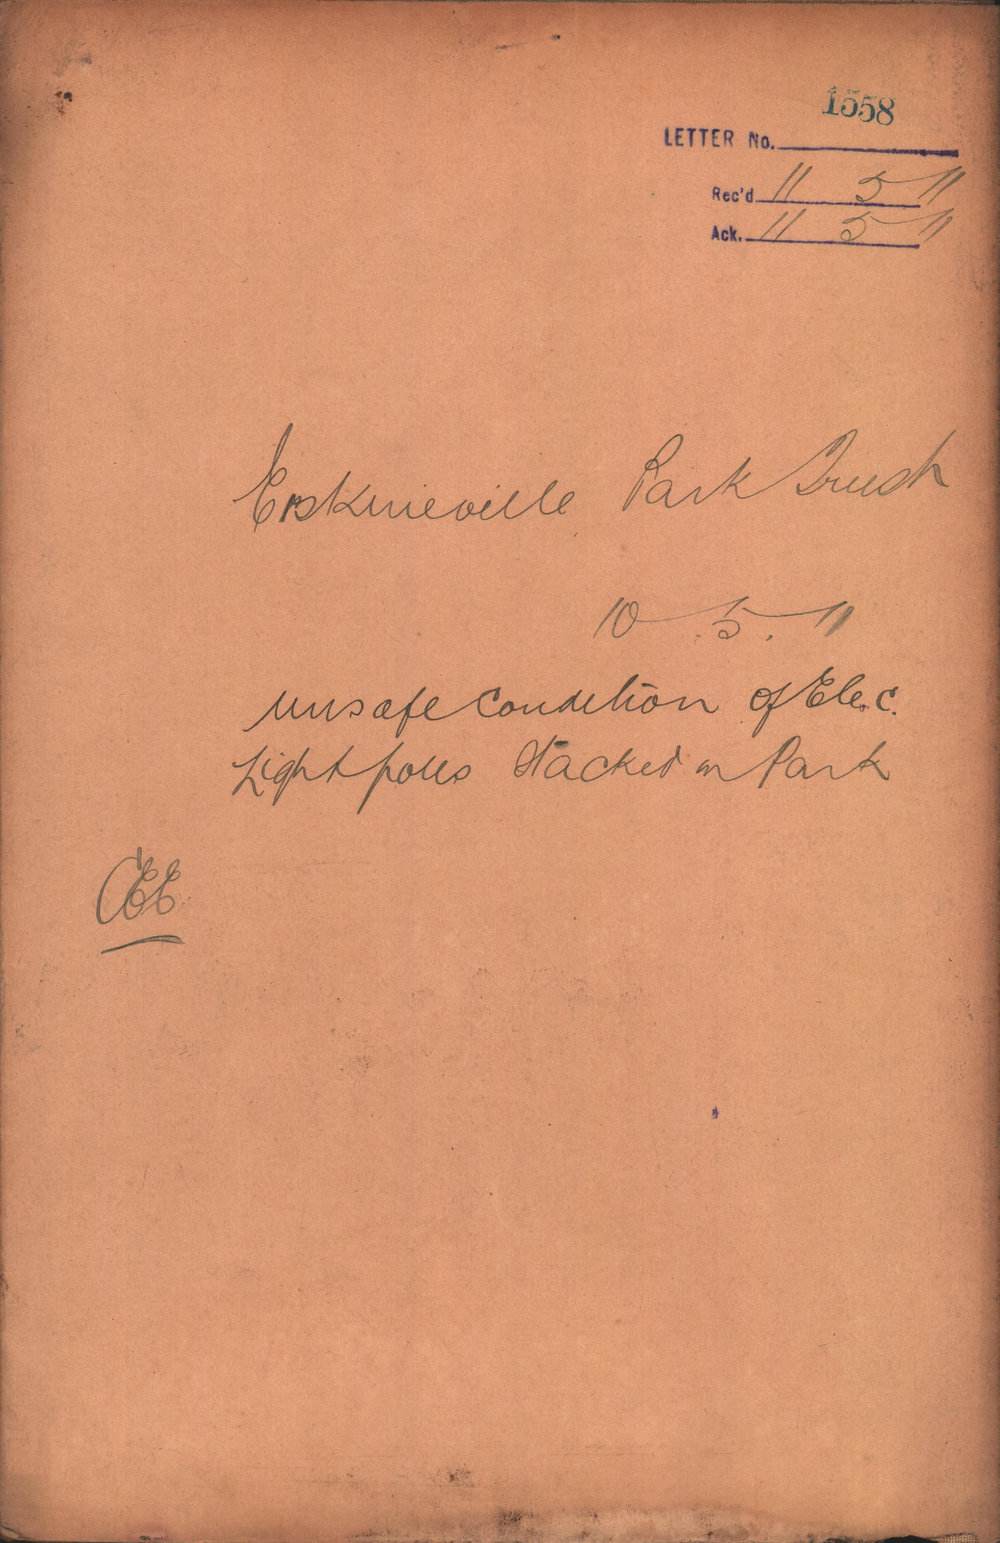 1558
LETTER No.
Rec'd 11 5 11
Ack. 11 5 11
Erskineville Park Trust
10.5.11
unsafe condition of Elec.
Light poles stacked on Park
CEE